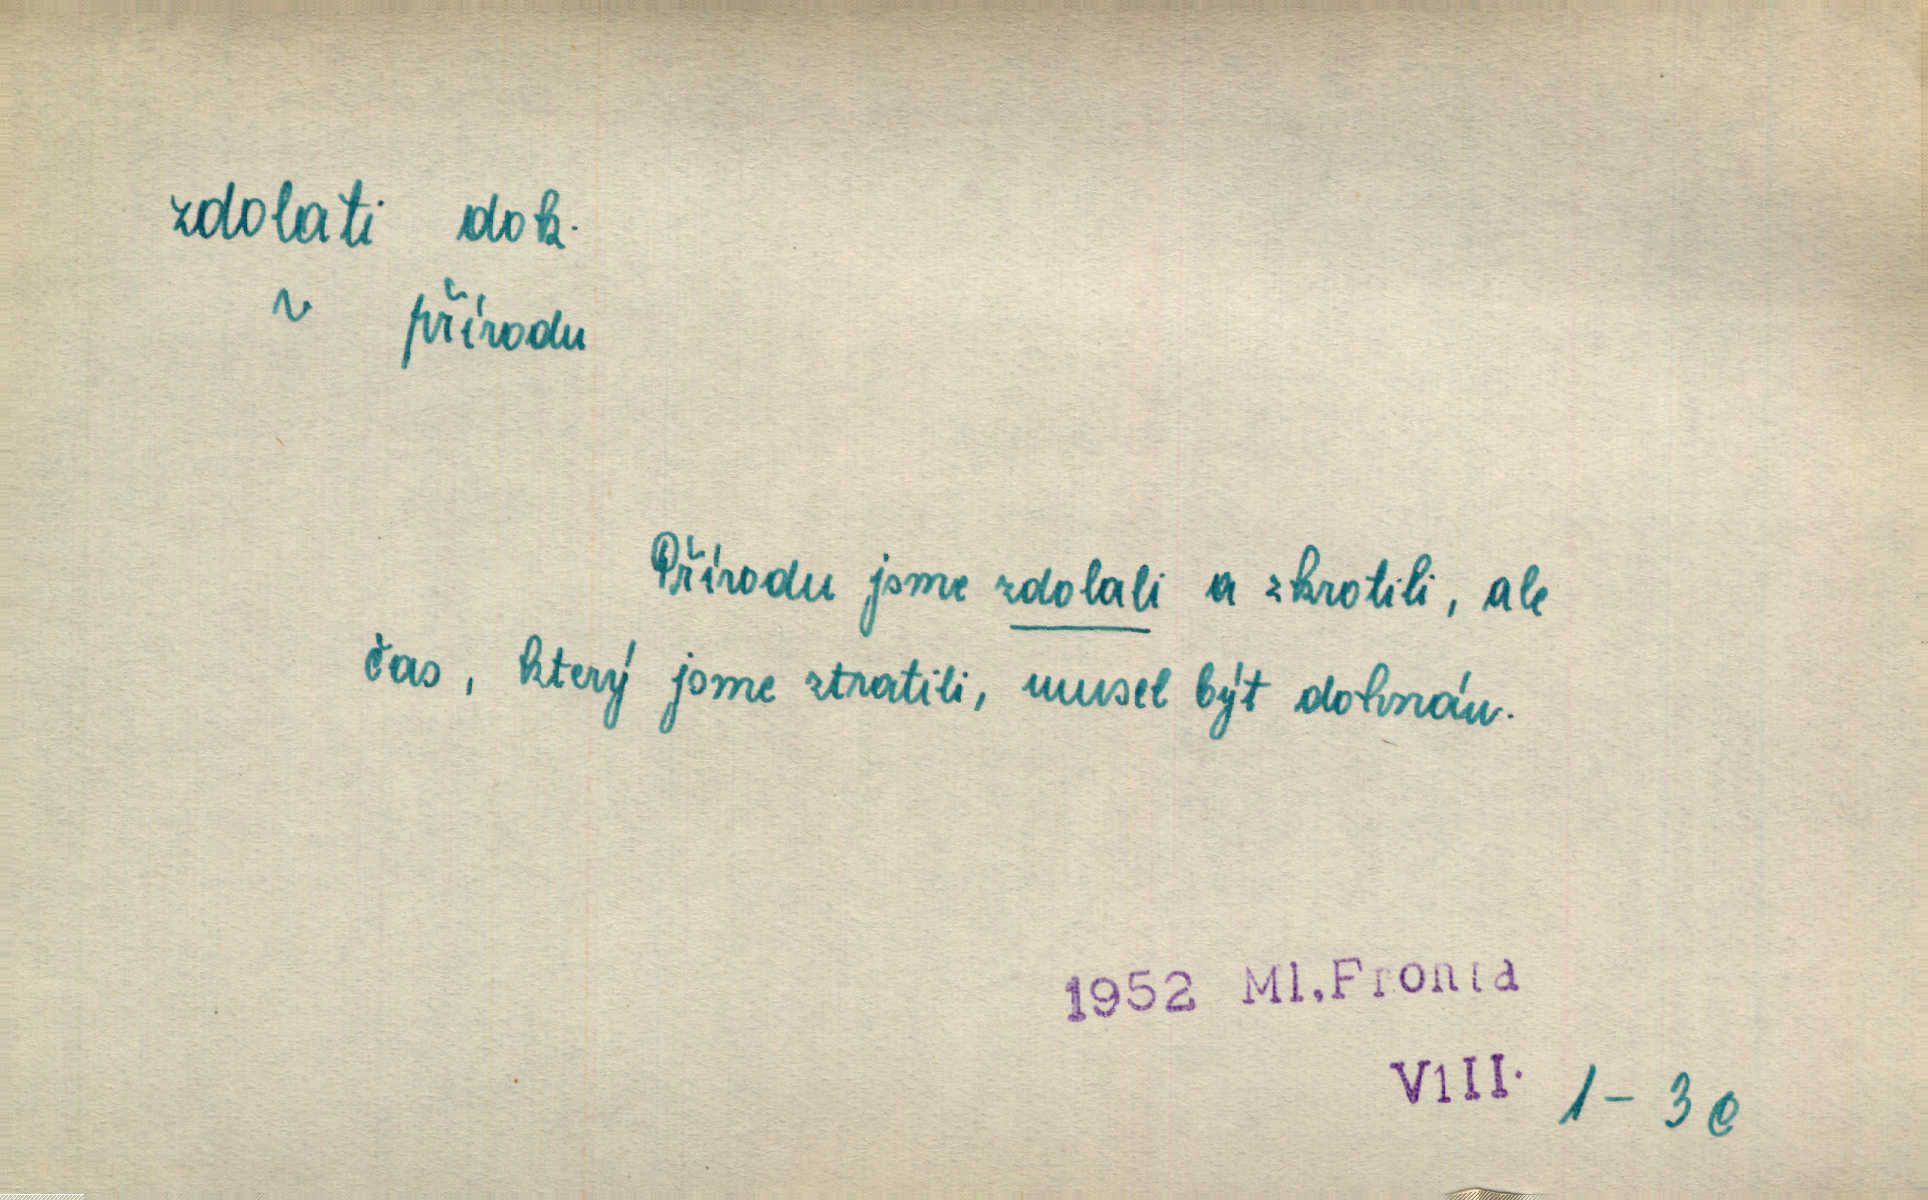 zdolati dok.
~ přírodu
Přírodu jsme zdolali a zkrotili, ale
čas, který jsme ztratili, musel být dohnán.
1952 Ml.Fronta
VIII. 1-3e